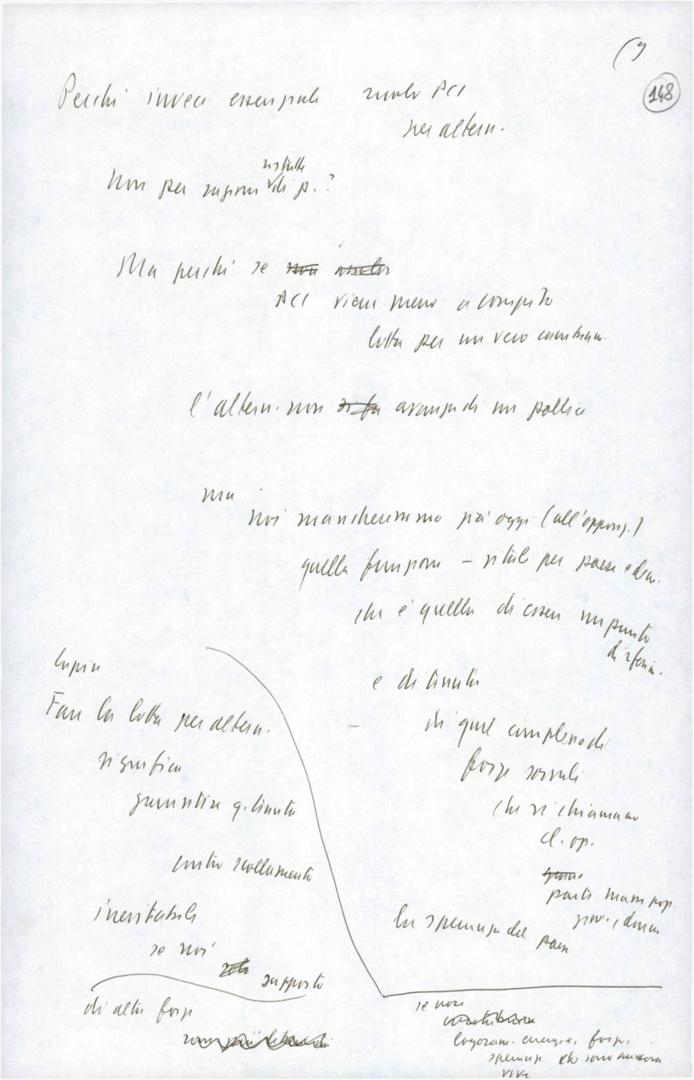 (9
148
Perchi invece essenziale ruolo PCI
per altern.
Non per ragioni di p.?
Ma perché se non
PCI viene meno a compito
lotta per un vero cambiam.
l'altern. non si fa avanza di un pollice
ma
noi mancheremmo già oggi (all'oppos.)
quella funzione – vitale per paese e dem.
che è quella di essere un punto
di riferim.
e di tenuta
di quel complesso di
forze sociali
che si chiamano
cl. op.
parti masse pop.
giov. donne
la speranza del paese
Fare la lotta per altern.
significa
garantire q. tenuta
contro scollamento
inevitabile
se noi
supporto
di altre forze
se non
logoram. energie, forze,
speranze che sono ancora
vive